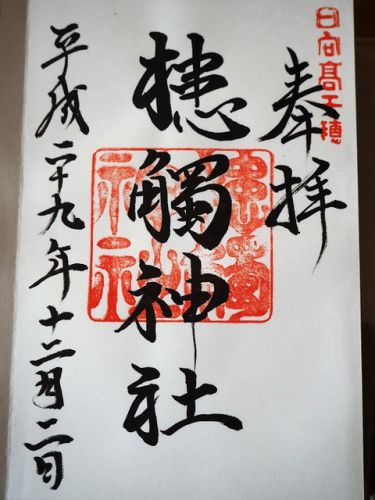 日向髙千穂
奉拝
槵觸神社
平成二十九年十二月二日